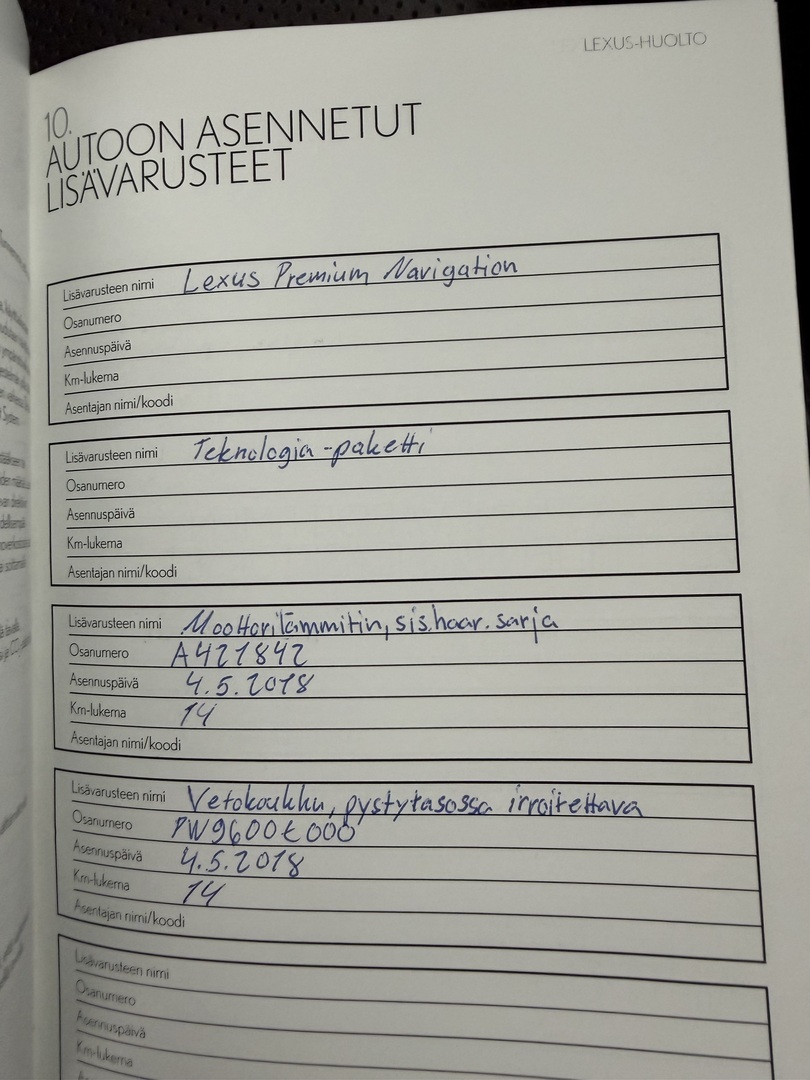 LEXUS-HUOLTO
10.
AUTOON ASENNETUT
LISÄVARUSTEET
Lisävarusteen nimi Lexus Premium Navigation
Osanumero
Asennuspäivä
Km-lukema
Asentajan nimi/koodi
Lisävarusteen nimi Teknologia-paketti
Osanumero
Asennuspäivä
Km-lukema
Asentajan nimi/koodi
Lisävarusteen nimi Moottorilämmitin, sis.haar. sarja
Osanumero A421842
Asennuspäivä 4.5.2018
Km-lukema 14
Asentajan nimi/koodi
Lisävarusteen nimi Vetokoukku, pystytasossa irroitettava
Osanumero PW9600E000
Asennuspäivä 4.5.2018
Km-lukema 14
Asentajan nimi/koodi
Lisävarusteen nimi
Osanumero
Asennuspäivä
Km-lukema